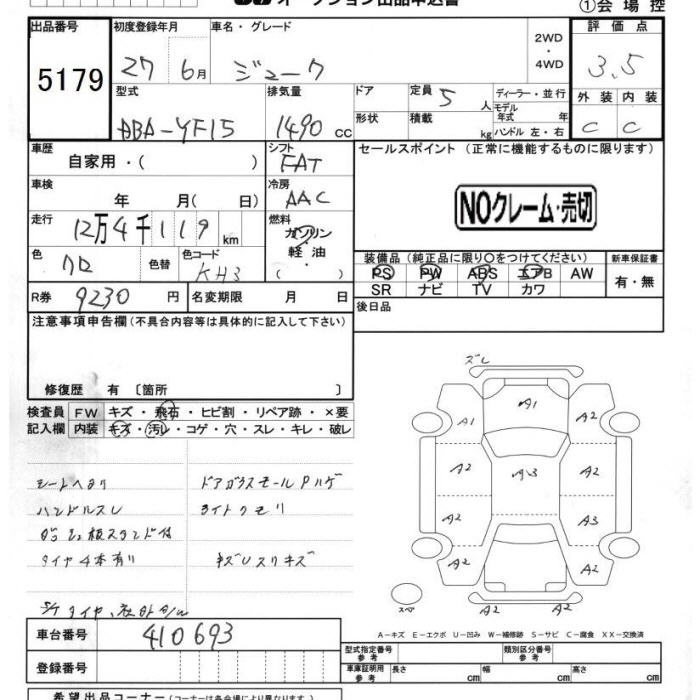 オークション出品申込書
①会場控
出品番号
5179
初度登録年月
27 6月
車名・グレード
ジューク
2WD
・
4WD
評価点
3.5
型式
ABA-YF15
排気量
1490 CC
ドア
形状
定員 5 人
積載 kg
ディーラー・並行
モデル年式 年
ハンドル 左・右
外装 内装
C C
車歴
自家用・( )
シフト
FAT
セールスポイント (正常に機能するものに限ります)
車検
年 月( 日)
冷房
AAC
NOクレーム・売切
走行
12万4千119 km
燃料
ガソリン
・
軽油
( )
色
クロ
色替
色コード
KH3
装備品(純正品に限り○をつけてください)
新車保証書
PS PW ABS エアB AW
SR ナビ TV カワ
有・無
R券 9230 円
名変期限 月 日
後日品
注意事項申告欄(不具合内容等は具体的に記入して下さい)
修復歴 有 〔箇所 〕
検査員
記入欄
FW キズ・飛石・ヒビ割・リペア跡・×要
内装 キズ・汚レ・コゲ・穴・スレ・キレ・破レ
シートヘタリ
ドアガラスモールPハゲ
ハンドルスレ
ライトクモリ
タイヤ4本有リ
キズUスリキズ
ズレ
A1
A1 A2
A2 A3 A2
A2 A3
A2 A2
スペ
A2 A2
A-キズ E-エクボ U-凹み W-補修跡 S-サビ C-腐食 XX-交換済
車台番号
410693
登録番号
型式指定番号
参考
類別区分番号
参考
車庫証明用
参考
長さ cm 幅 cm 高さ cm
希望出品コーナー(コーナーは各会場により異なります。)